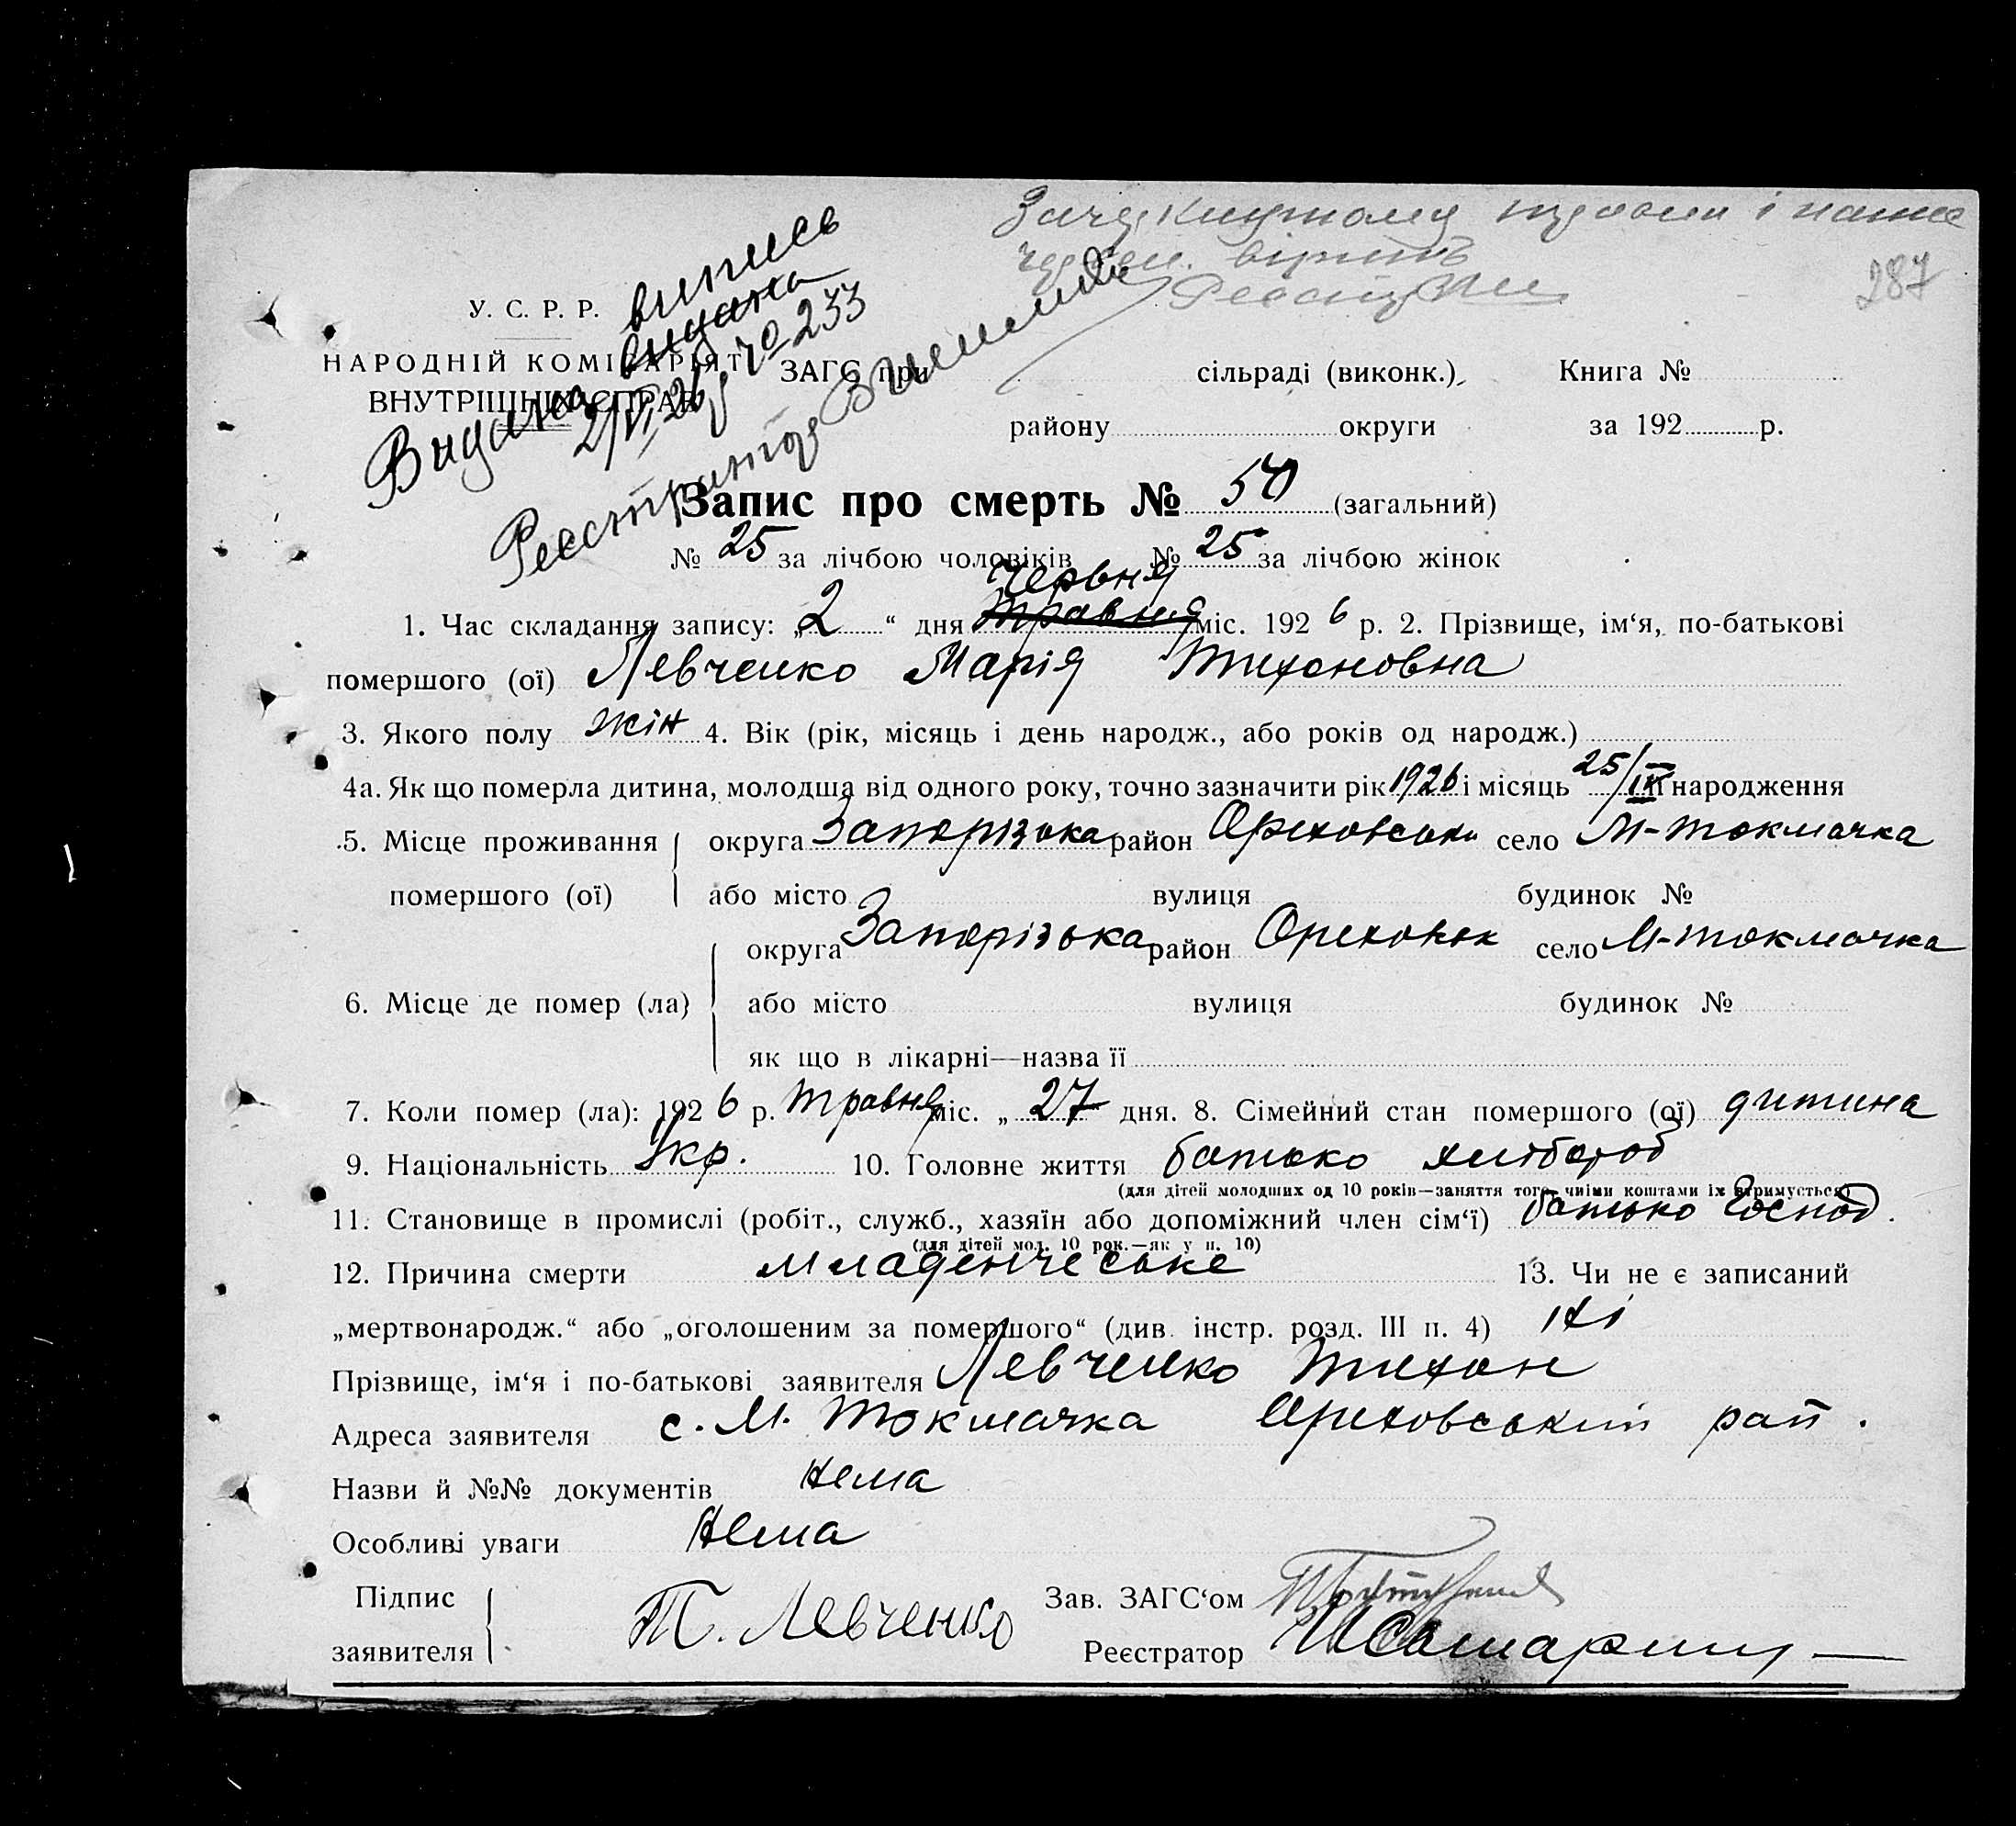 Зачеркнутому травня і написа
черьвня. вірить
Реєстр
287
Видана випись
видана
2/VI 26 р № 233
Реєстратор
У. С. Р. Р.
НАРОДНІЙ КОМІСАРІЯТ
ВНУТРІШНІХ СПРАВ
ЗАГС при сільраді (виконк.), Книга №
району округи за 192 р.
Запис про смерть № 50 (загальний)
№ 25 за лічбою чоловіків № 25 за лічбою жінок
червня
1. Час складання запису: „2“ дня травня міс. 1926 р. 2. Прізвище, ім‘я, по-батькові
помершого (ої) Левченко Марія Тихоновна
3. Якого полу жін 4. Вік (рік, місяць і день народж., або років од народж.)
4а. Як що померла дитина, молодша від одного року, точно зазначити рік 1926 і місяць 25/III народження
5. Місце проживання помершого (ої) округа Запорізька район Ореховськи село М-токмачка
або місто вулиця будинок №
округа Запорізька район Ореховськ село М-токмачка
6. Місце де помер (ла) або місто вулиця будинок №
як що в лікарні—назва її
7. Коли помер (ла): 1926 р. травня міс. „27“ дня. 8. Сімейний стан помершого (ої) дитина
9. Національність Укр. 10. Головне життя батько хлібороб
(для дітей молодших од 10 років—заняття того, чиїми коштами їх втримується)
11. Становище в промислі (робіт., служб., хазяїн або допоміжний член сім‘ї) батько Господ.
(для дітей мол. 10 рок.—як у п. 10)
12. Причина смерти младенческе 13. Чи не є записаний
„мертвонародж.“ або „оголошеним за помершого“ (див. інстр. розд. III п. 4) ні
Прізвище, ім‘я і по-батькові заявителя Левченко Тихон
Адреса заявителя с. М. Токмачка Ореховський рай.
Назви й №№ документів нема
Особливі уваги Нема
Підпис заявителя Т. Левченко Зав. ЗАГС‘ом
Реєстратор